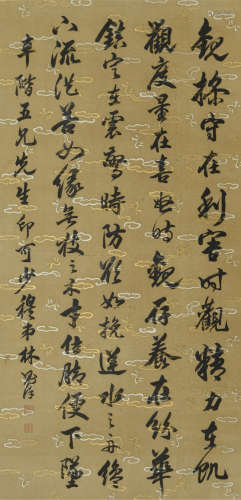 觀操守在利害時觀精力在飢
觀度量在喜怒時觀存養在紛華
鎮定在震驚時防欲如挽逆水之舟
下流從善如緣無枝之木才住腳便下墜
辛階五兄先生印可少穆弟林則徐